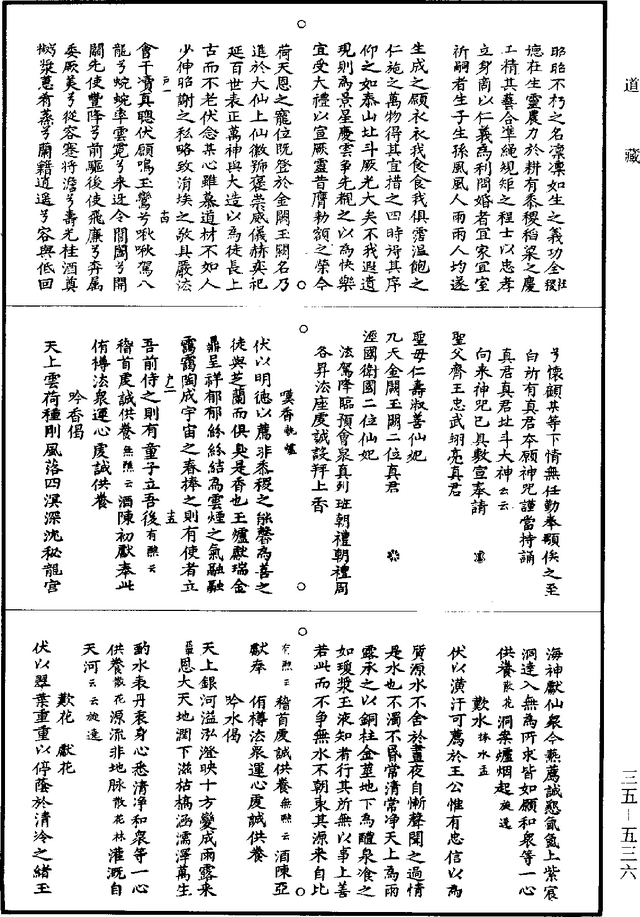 道藏
昭昭不朽之名凜凜如生之義功全社稷
德在生靈農力於耕有黍稷稻粱之慶
工精其藝合準繩規矩之程士以忠孝
立身商以仁義為利問婚者宜家宜室
祈嗣者生子生孫風風人雨雨人均遂
生成之願衣衣我食食我俱霑溫飽之
仁施之萬物得其宜措之四時得其序
仰之如泰山北斗厥光大矣不我遐遺
現則為景星慶雲爭先覩之以為快樂
宜受大禮以宣厥靈昔膺勑額之榮今
荷天恩之寵位既登於金闕玉闕名乃
進於大仙上仙徽號褒崇威儀赫奕祀
延百世表正萬神與大造以為徒長上
古而不老伏念某心雖慕道材不如人
少伸昭謝之私略致涓埃之敬具嚴法
會干瀆真聰伏願鳴玉鸞兮啾啾駕八
龍兮蜿蜿率雲霓兮來迓令閶闔兮開
關先使豐隆兮前驅後使飛廉兮奔屬
委厥美兮從容蹇將澹兮壽光桂酒奠
椒漿蕙肴蒸兮蘭籍逍遥兮容與低回
兮懷顧某等下情無任勤奉顒俟之至
白所有真君本願神咒謹當持誦
真君真君北斗大神云云
向來神咒已具敷宣奉請
聖父齊王忠武翊亮真君
聖母仁壽淑善仙妃
九天金闕玉闕二位真君
涇國衛國二位仙妃
法駕降臨預會眾真列班朝禮朝禮周
各昇法座虔誠談拜上香
嘆香執爐
伏以明德以薦非黍稷之能馨為善之
徒與芝蘭而俱臭是香也玉爐獻瑞金
鼎呈祥郁郁紛紛結為雲煙之氣融融
靄靄陶成宇宙之春捧之則有使者立
吾前侍之則有童子立吾後有熊云
稽首虔誠供養無熊云酒陳初獻奉此
侑樽法眾運心虔誠供養
吟香偈
天上雲荷種剛風落四溟深沈秘龍宮
海神獻仙眾今爇薦誠愬氤氳上紫宸
洞達入無為所求皆如願和眾等一心
供養散花洞案爐烟起旋遶
歎水捧水盂
伏以潢汙可薦於王公惟有忠信以為
質源水不舍於晝夜自慚聲聞之過情
是水也不濁不昏常清常淨天上為雨
露承之以銅柱金莖地下為醴泉飡之
如瓊漿玉液知者行其所無以事上善
若此而不爭無水不朝東其源來自比
有熊云稽首虔誠供養無熊云酒陳亞
獻奉侑樽法眾運心虔誠供養
吟水偈
天上銀河溢泓澄映十方變成雨露來
羅恩大天地潤下滋枯槁涵濡澤萬生
酌水表丹衷身心悉清淨和眾等一心
供養散花源流非地脉散花林灌溉自
天河云云旋遶
歎花獻花
伏以翠葉重重以停蔭於清泠之緒玉
三五—五三六